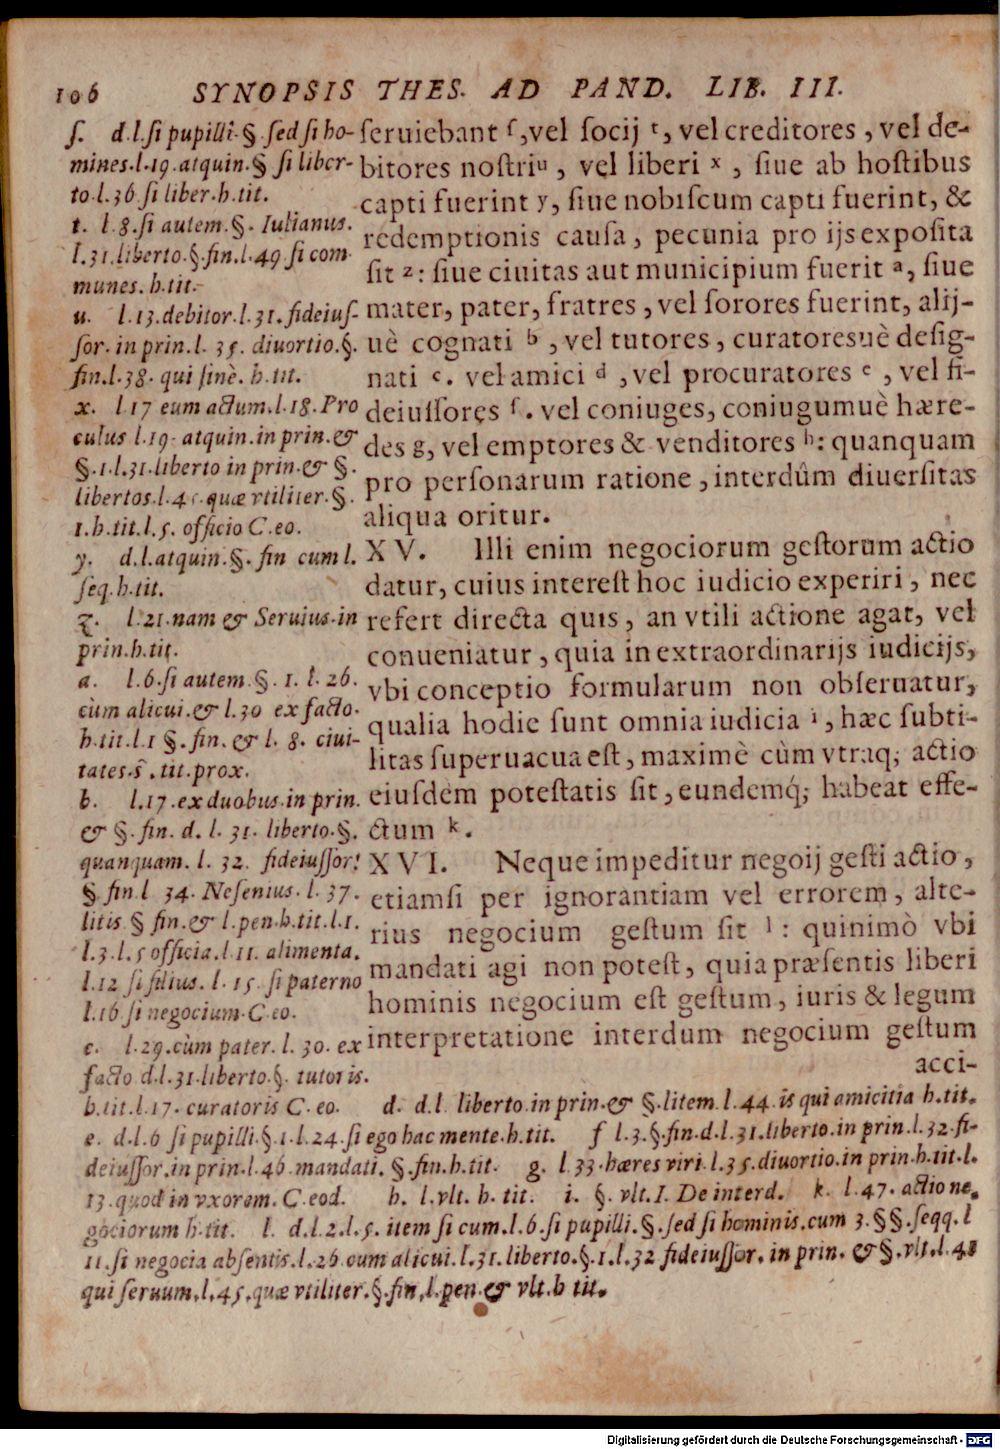 106 SYNOPSIS THES. AD PAND. LIB. III.
ſeruiebant ſ, vel ſocij t, vel creditores, vel de-
bitores noſtri u, vel liberi x, ſiue ab hoſtibus
capti fuerint y, ſiue nobiſcum capti fuerint, &
redemptionis cauſa, pecunia pro ijs expoſita
ſit z: ſiue ciuitas aut municipium fuerit a, ſiue
mater, pater, fratres, vel ſorores fuerint, alij-
uè cognati b, vel tutores, curatoresuè deſig-
nati c. vel amici d, vel procuratores e, vel fi-
deiuſſores f. vel coniuges, coniugumuè hære-
des g, vel emptores & venditores h: quanquam
pro perſonarum ratione, interdûm diuerſitas
aliqua oritur.
XV. Illi enim negociorum geſtorum actio
datur, cuius intereſt hoc iudicio experiri, nec
refert directa quis, an vtili actione agat, vel
conueniatur, quia in extraordinarijs iudicijs,
vbi conceptio formularum non obſeruatur,
qualia hodie ſunt omnia iudicia i, hæc ſubti-
litas ſuperuacua eſt, maximè cùm vtraq; actio
eiuſdem poteſtatis ſit, eundemq́; habeat effe-
ctum k.
XVI. Neque impeditur negoij geſti actio,
etiamſi per ignorantiam vel errorem, alte-
rius negocium geſtum ſit l: quinimò vbi
mandati agi non poteſt, quia præſentis liberi
hominis negocium eſt geſtum, iuris & legum
interpretatione interdum negocium geſtum
acci-
ſ. d.l.ſi pupilli.§.ſed ſi ho-
mines.l.19.atquin.§ ſi liber-
to.l.36 ſi liber.h.tit.
t. l.8.ſi autem.§. Iulianus.
l.31.liberto.§.fin.l.49.ſi com
munes. h.tit.
u. l.13.debitor.l.31.fideiuſ-
ſor.in prin.l. 35. diuortio.§.
fin.l.38. qui ſinè. h.tit.
x. l.17 eum actum.l.18.Pro
culus l.19. atquin.in prin.&
§.1.l.31.liberto in prin.& §.
libertos.l.45.quæ vtiliter.§.
1.h.tit.l.5. officio C.eo.
y. d.l.atquin.§. fin cum l.
ſeq.h.tit.
z. l.21.nam & Seruius.in
prin.h.tit.
a. l.6.ſi autem.§. 1. l. 26.
cùm alicui.& l.30 ex facto.
h.tit.l.1 §.fin.& l. 8. ciui-
tates.s̃.tit.prox.
b. l.17.ex duobus.in prin.
& §.fin. d. l. 31. liberto.§.
quanquam. l. 32. fideiuſſor.
§ fin.l 34. Neſenius. l. 37.
litis § fin.& l.pen.h.tit.l.1.
l.3.l.5 officia.l.11. alimenta.
l.12 ſi filius. l. 15. ſi paterno
l.16 ſi negocium.C.eo.
c. l.29.cùm pater. l. 30. ex
facto d.l.31.liberto.§. tutoris.
h.tit.l.17. curatoris C. eo. d. d.l. liberto.in prin.& §.litem.l.44. is qui amicitia h.tit.
e. d.l.6 ſi pupilli.§.1.l.24.ſi ego hac mente.h.tit. f l.3.§.fin.d.l.31.liberto.in prin.l.32.fi-
deiuſſor.in prin.l.46.mandati.§.fin.h.tit. g. l.33.hæres viri.l.35.diuortio.in prin.h.tit.l.
13.quod in vxorem.C.eod. h. l.vlt. h. tit. i. §. vlt.I. De interd. k. l.47. actio ne-
gociorum h.tit. l. d.l.2.l.5. item ſi cum.l.6.ſi pupilli.§.ſed ſi hominis.cum 3.§§.ſeqq.l
11.ſi negocia abſentis.l.26.cum alicui.l.31.liberto.§.1.l.32 fideiuſſor.in prin. & §.vlt.l.41
qui ſeruum.l.45.quæ vtiliter.§.fin.l.pen.& vlt.h tit.
Digitalisierung gefördert durch die Deutsche Forschungsgemeinschaft - DFG